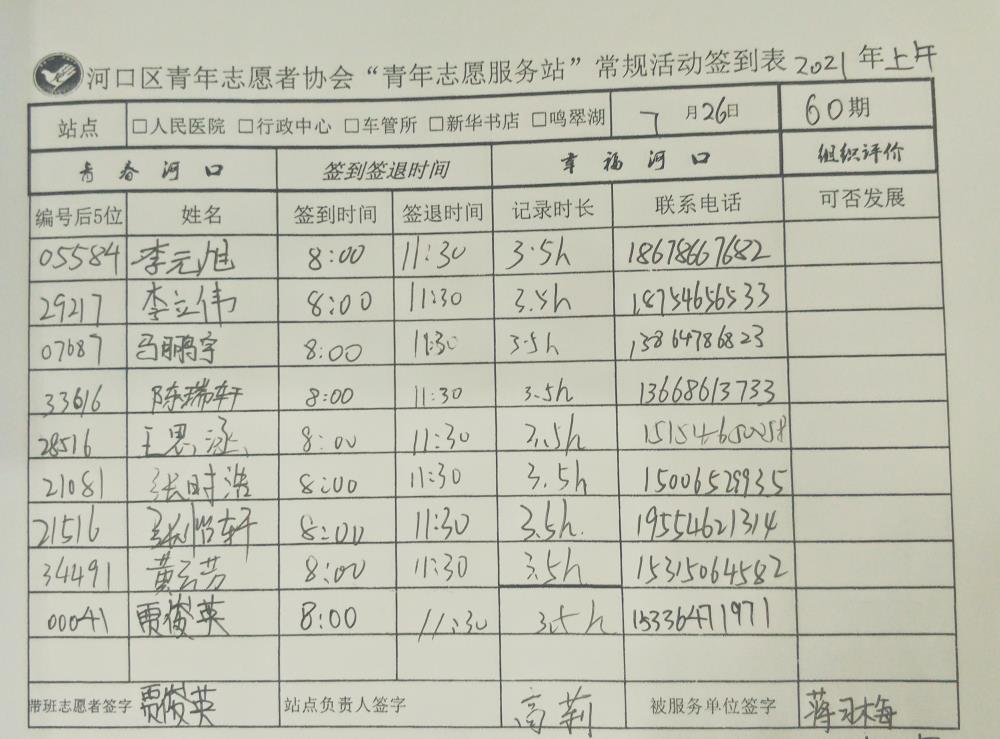 河口区青年志愿者协会“青年志愿服务站”常规活动签到表 2021年上午
站点 □人民医院 □行政中心 □车管所 □新华书店 □鸣翠湖 7月26日 60期
青春河口 签到签退时间 幸福河口 组织评价
编号后5位 姓名 签到时间 签退时间 记录时长 联系电话 可否发展
05584 李元旭 8:00 11:30 3.5h 18678667682
29217 李立伟 8:00 11:30 3.5h 18754656533
07687 马鹏宇 8:00 11:30 3.5h 13864786823
33616 陈瑞轩 8:00 11:30 3.5h 13668613733
28516 王思涵 8:00 11:30 3.5h
21081 张时浩 8:00 11:30 3.5h 15006529935
21516 张怡轩 8:00 11:30 3.5h 19554621314
34491 黄云芳 8:00 11:30 3.5h 15315064582
00041 贾俊英 8:00 11:30 3.5h 15336471971
带班志愿者签字 贾俊英 站点负责人签字 高莉 被服务单位签字 蒋习梅